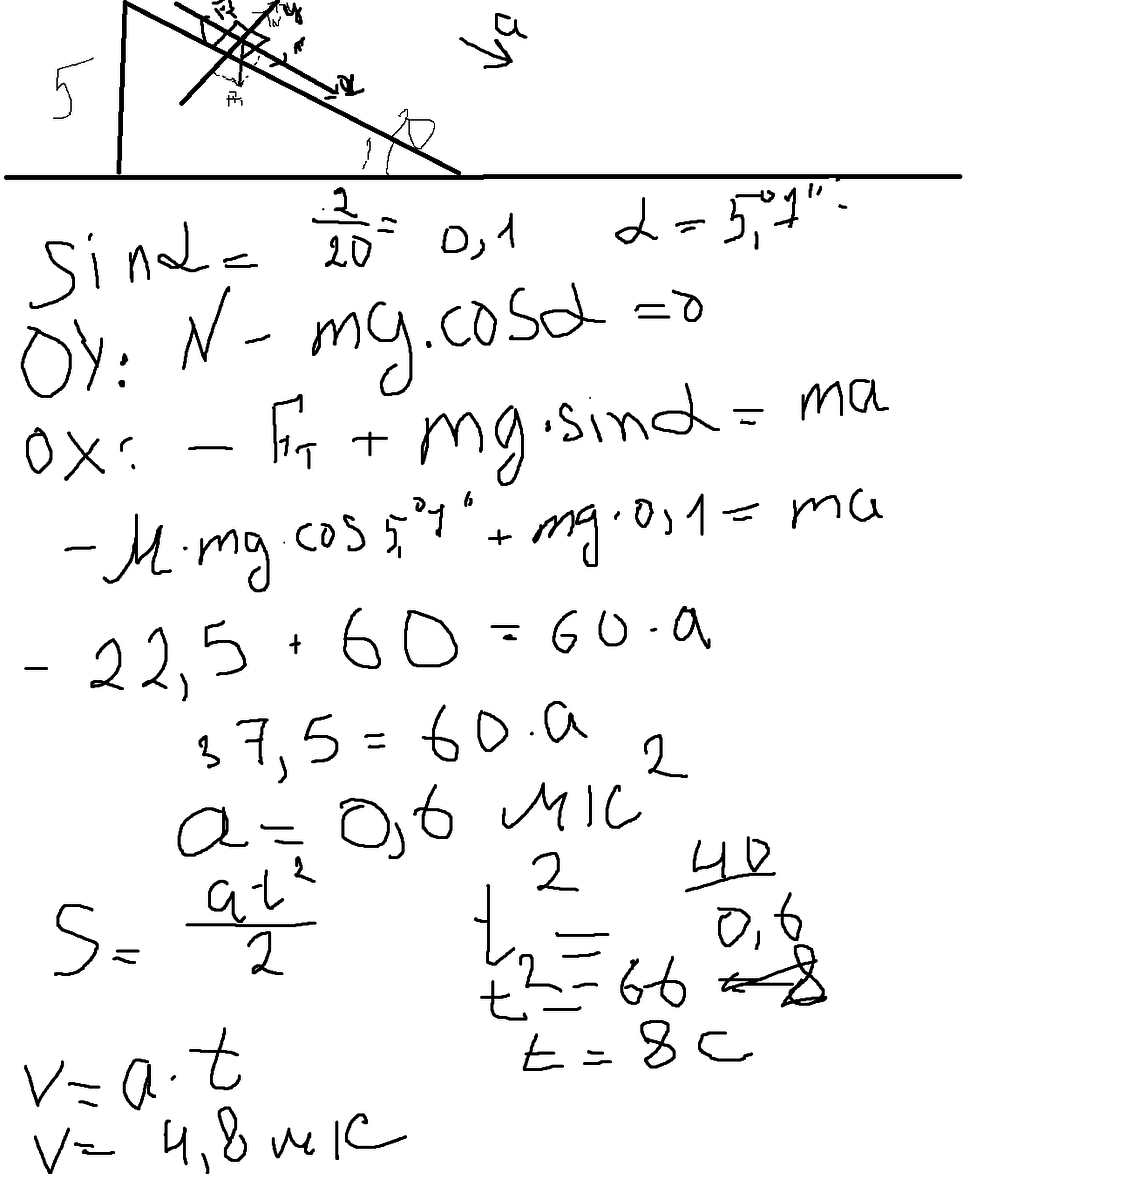 a
5
Sinα = 2/20 = 0,1 α = 5,°7"
OY: N - mg.cosα = 0
OX: - Fт + mg.sinα = ma
- μ.mg.cos5,°7" + mg.0,1 = ma
- 22,5 + 60 = 60.a
37,5 = 60.a
a = 0,6 м/с²
S = at²/2 t² = 40/0,6
t² = 66
t = 8 с
v = a.t
v = 4,8 м/с